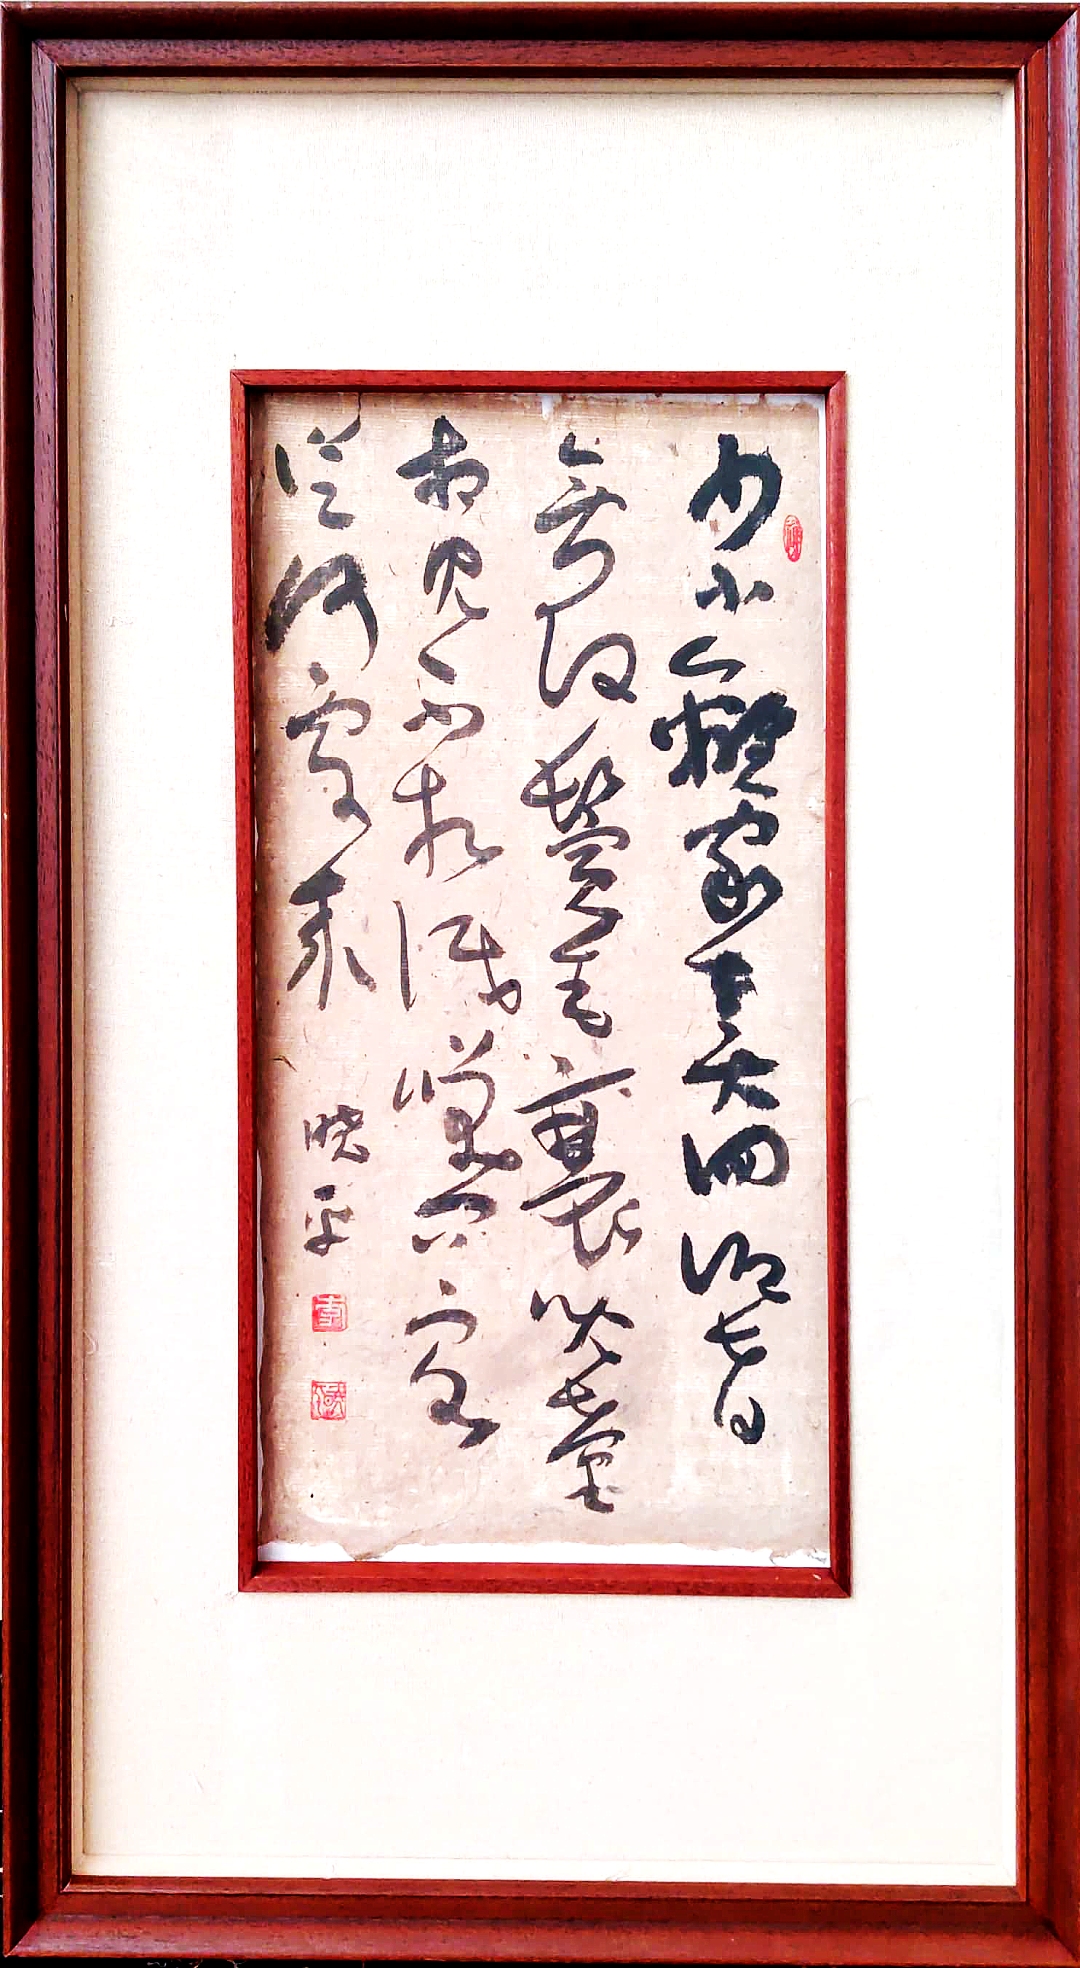 少小離家老大回鄉音
無改鬢毛衰兒童
相見不相識笑問客
從何處來
晓平